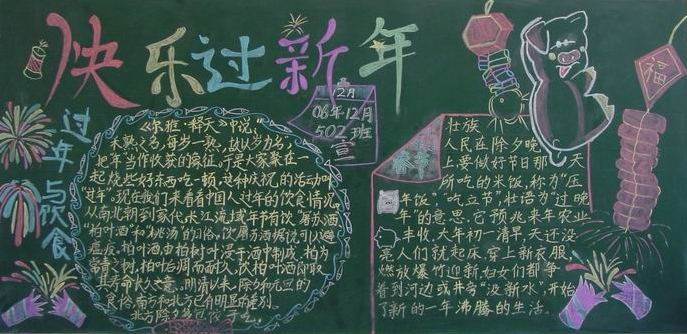 快乐过新年
2月
06年·12月
502班
宣
过年与饮食
《尔雅·释天》中说，
禾熟之名，每岁一熟，故以岁为名，
把年当作收获的象征。于是大家聚在一
起烧些好东西吃一顿，这种庆祝的活动叫
"过年"。现在我们来看看中国人过年的饮食情况，
从南北朝到宋代，水江流域年节有饮"屠苏酒"
"柏叶酒"和"桃汤"的习俗，饮屠苏酒据说可以避
瘟疫，柏叶酒由柏树叶浸于酒中制成，柏为
常青之树，柏枯凋而耐久，饮柏叶酒即取
其寿命长久之意。明清以来，除夕和元旦的
食俗南方和北方已有明显的差别。
北方除夕多包饺子吃
春节
福
壮族
人民在除夕晚
上要做好节日那一天
所吃的米饭，称为"压
年饭"，"吃立节"，壮语为"过晚
年"的意思，它预兆来年农业
丰收，大年初一清早，天还没
亮人们就起床，穿上新衣服，
燃放爆竹迎新，妇女们都争
着到河边或井旁"汲新水"，开始
了新的一年沸腾的生活。